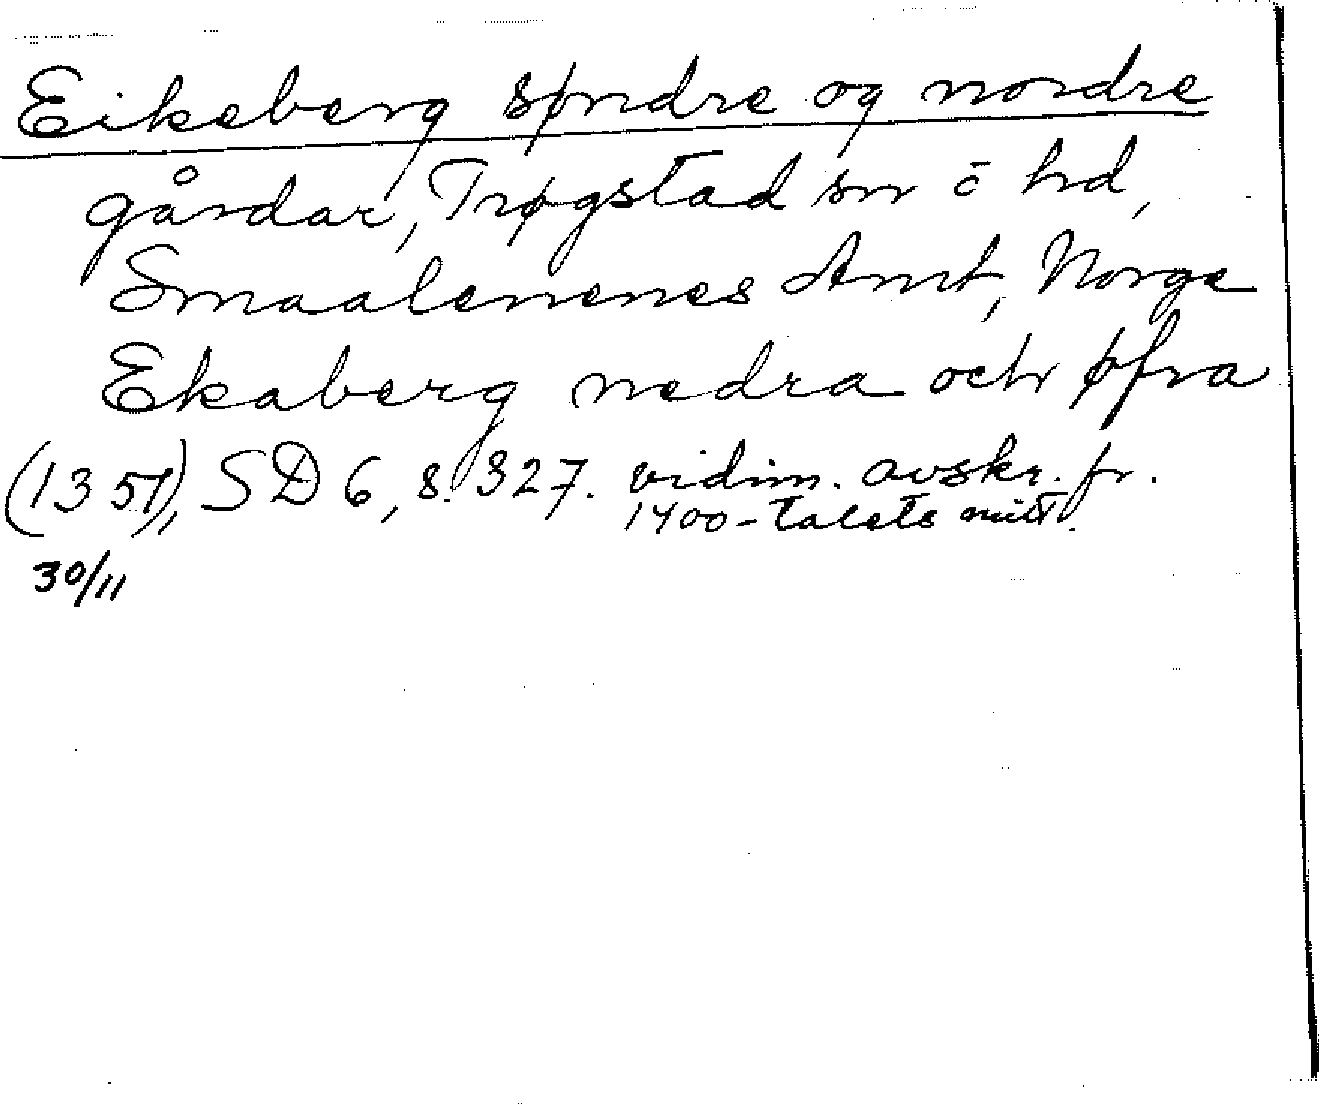 Eikeberg søndre og nordre
gårdar, Trøgstad sn o hd,
Smaalenenes Amt, Norge
Ekaberg nedra och øfra
(1357), SD 6, s. 327. vidim. avskr. fr.
1400-talets mitt.
30/11